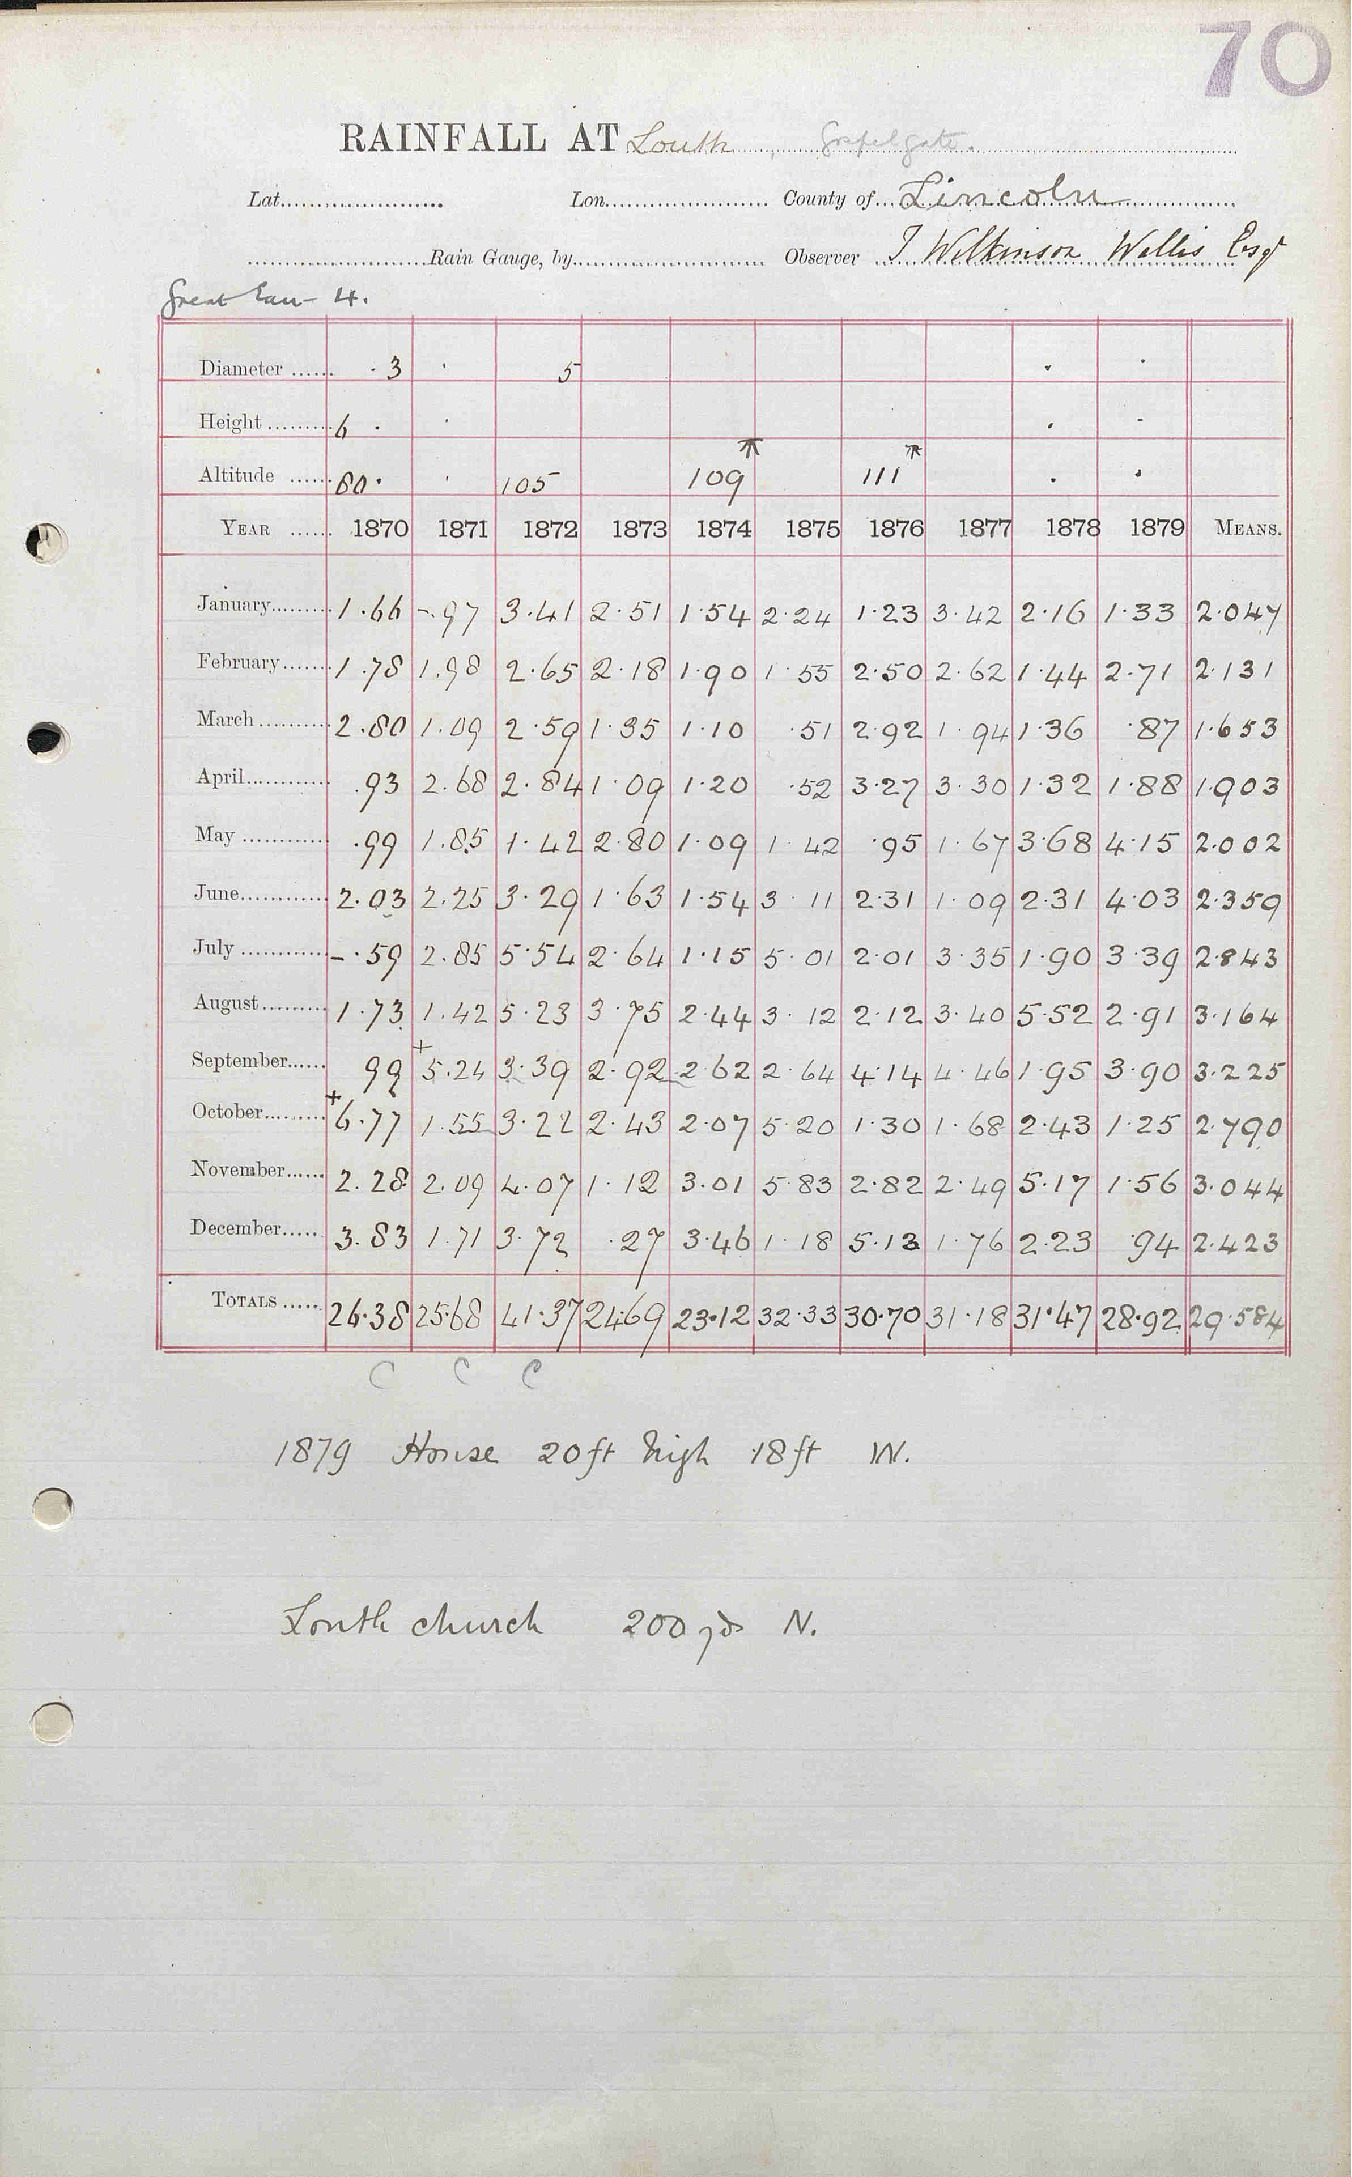 70
RAINFALL AT Louth, Gospelgate.
Lat. Lon. County of Lincoln
Rain Gauge, by Observer T Wilkinson Wallis Esqr
Great Eau 4.
Diameter 3 5
Height 6
Altitude 80 105 109 111
YEAR 1870 1871 1872 1873 1874 1875 1876 1877 1878 1879 MEANS.
January 1.66 -.97 3.41 2.51 1.54 2.24 1.23 3.42 2.16 1.33 2.047
February 1.78 1.98 2.65 2.18 1.90 1.55 2.50 2.62 1.44 2.71 2.131
March 2.80 1.09 2.59 1.35 1.10 .51 2.92 1.94 1.36 .87 1.653
April .93 2.68 2.84 1.09 1.20 .52 3.27 3.30 1.32 1.88 1.903
May .99 1.85 1.42 2.80 1.09 1.42 .95 1.67 3.68 4.15 2.002
June 2.03 2.25 3.29 1.63 1.54 3.11 2.31 1.09 2.31 4.03 2.359
July -.59 2.85 5.54 2.64 1.15 5.01 2.01 3.35 1.90 3.39 2.843
August 1.73 1.42 5.23 3.75 2.44 3.12 2.12 3.40 5.52 2.91 3.164
September 99 +5.24 3.39 2.92 2.62 2.64 4.14 4.46 1.95 3.90 3.225
October +6.77 1.55 3.22 2.43 2.07 5.20 1.30 1.68 2.43 1.25 2.790
November 2.28 2.09 4.07 1.12 3.01 5.83 2.82 2.49 5.17 1.56 3.044
December 3.83 1.71 3.72 .27 3.46 1.18 5.13 1.76 2.23 .94 2.423
TOTALS 26.38 25.68 41.37 24.69 23.12 32.33 30.70 31.18 31.47 28.92 29.584
C C C
1879 House 20ft high 18ft W.
Louth church 200 yds N.